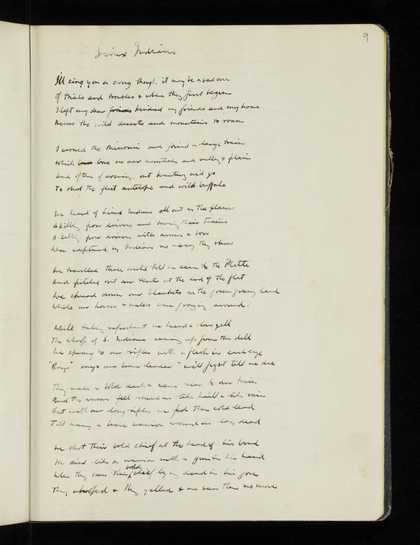 9
Sioux Indians
I'll sing you a song though it may be a sad one
Of trials and troubles & where they first begun
I left my dear kindred my friends and my home
Across the wild deserts and mountains to roam
I crossed the Missouri and joined a large train
Which bore us over mountain and valley & plain
And often of evening out hunting we'd go
To shoot the fleet antelope and wild buffalo
We heard of Sioux Indians all out on the plain
A killing poor drivers and burning their trains
A killing poor drivers with arrow & bow
When captured by Indians no mercy they show
We travelled three weeks till we came to the Platte
And pitched out our tents at the end of the flat
We spread down our blankets on the green grassy land
While our horses & mules were grazing around.
While taking refreshment we heard a low yell
The whoop of Indians coming up from the dell
We sprang to our rifles with a flash in each eye
"Boys" says our brave leader "we'll fight till we die"
They made a bold dash & came near to our train
And the arrows fell around us like hail & like rain
But with our long rifles we fed them cold lead
Till many a brave warrior around us lay dead
We shot their bold chief at the head of his band
He died like a warrior with a gun in his hand
When they saw their bold chief lying dead in his gore
They whooped & they yelled & we saw them no more